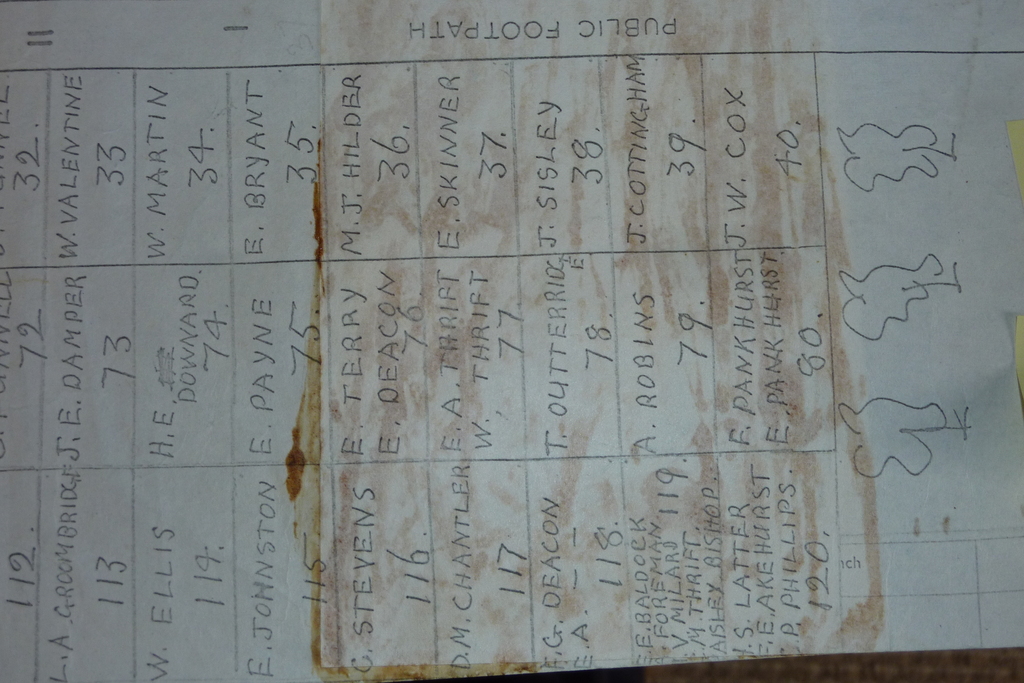 PUBLIC FOOTPATH
II
I
32.
W. VALENTINE
33
W. MARTIN
34.
E. BRYANT
35.
M. J. HILDER
36.
E. SKINNER
37.
J. SISLEY
38.
J. COTTINGHAM
39.
J. W. COX
40.
72.
J. E. DAMPER
73
H. E.
DOWNARD.
74.
E. PAYNE
75.
E. TERRY
E. DEACON
76.
E. A. THRIFT
W. THRIFT
77.
T. OUTTERRIDGE
E
78.
A. ROBINS
79.
E. PANKHURST
E. PANKHURST.
80.
112.
L. A. GROOMBRIDGE
113
W. ELLIS
114.
E. JOHNSTON
115
C. STEVENS
116.
D. M. CHANTLER
117
G. DEACON
E. A. – –
118.
E. BALDOCK
FOREMAN 119.
V. MILLARD
M. THRIFT
AISLEY BISHOP
S. LATTER
E. AKEHURST
P. PHILLIPS.
120.